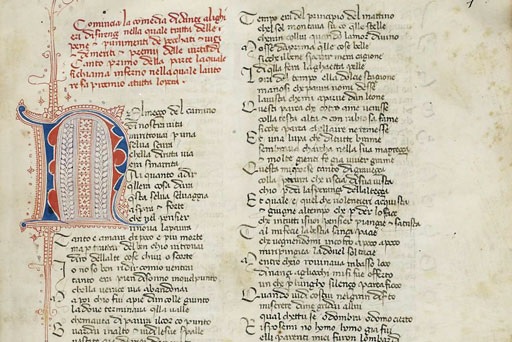 Comincia la comedia di dante alighi
eri di firençe nella quale tratta delle
pene et punimenti de vizi
et demeriti et premii delle virtù
Canto primo della parte la quale
si chiama inferno nella quale lauto
re fa proemio a tutta lopera
Nel mezo del camino
di nostra vita
mi ritrovai p una
selva scura
che la diritta via
era smarrita
quanto a dir
qual era cosa dura
esta selva selvaggia
aspra e forte
che nel pensier
rinova la paura
Tanto e amara che poco e piu morte
ma p trattar del ben chio vi trovai
diro dellaltre cose chio vo scorte
Io no so ben ridir comio ventrai
tanto era pien di sonno in quel punto
che la verace via abandonai
Ma poi chio fui a pie dun colle giunto
la dove terminava quella valle
che mavea di paura il cor compunto
Guardai in alto e vidi le sue spalle
Tempo era del principio del mattino
el sol montava su co quelle stelle
cheran collui quando lamor divino
Mosse da prima quelle cose belle
siche a bene sperar mera cagione
di quella fera la gaetta pelle
Lora del tempo ella dolce stagione
ma no si che paura no mi desse
la vista che mi apparve dun leone
Questi parea che contro a me venisse
colla testa alta e con rabiosa fame
si che parea che laere ne temesse
E una lupa che di tutte brame
sembiava charcha nella sua magrezza
e molte genti fe gia viver grame
Questa mi porse tanto di gravezza
colla paura chuscia di sua vista
chio perdei la speranza dellaltezza
E quale e quel che volentieri acquista
e giugne il tempo che perder lo face
che in tutti i suoi pensier piange e sattrista
Tal mi fece la bestia senza pace
che vegnendomi incontro a poco a poco
mi ripingeva la dovel sol tace
Mentre chio rovinava in basso loco
dinanzi agliocchi mi si fu offerto
chi per lungo silenzo parea fioco
Quando vidi costui nel gran diserto
miserere di me gridai allui
qual che tu sie od ombra od omo certo
Risposemi no homo homo gia fui
elli parenti miei furon lombardi